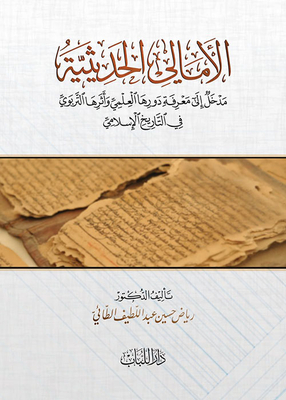 الأمالي الحديثية
مدخل إلى معرفة دورها العلمي وأثرها التربوي
في التاريخ الإسلامي
تأليف الدكتور
رياض حسين عبد اللطيف الطائي
دار اللباب